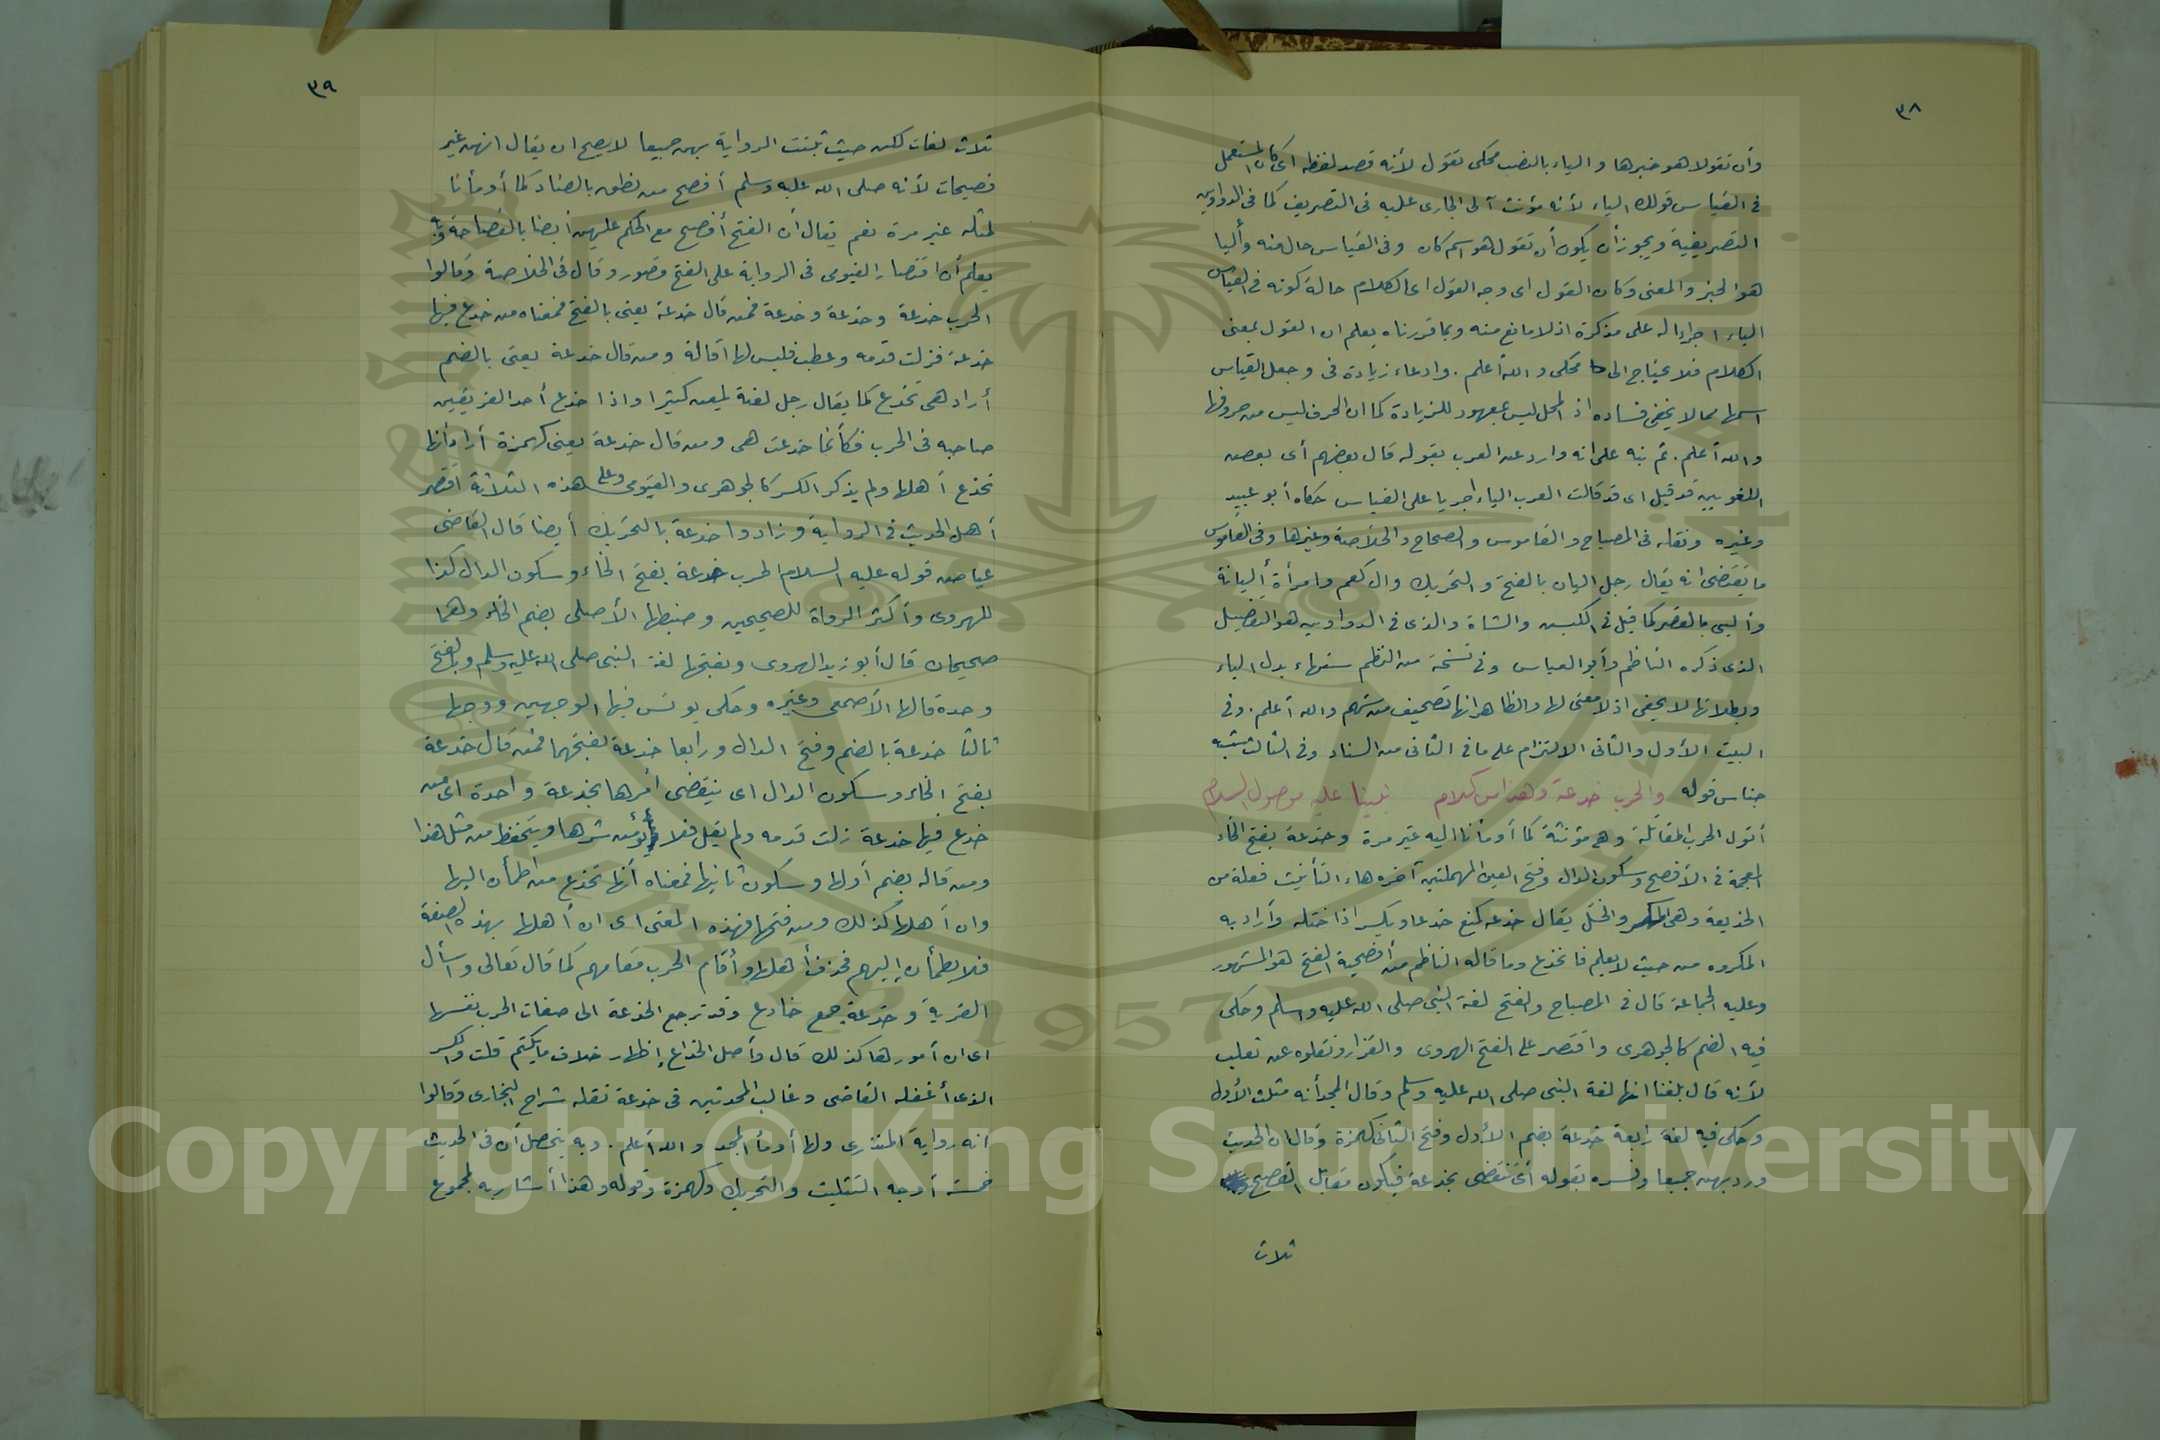 ٣٨
وأن تقولا هو خبرها والياء بالنصب محكي تقول لأنه قصد لفظه اى كان المستعمل
في القياس قولك الياء لأنه مؤنث آلى الجارى عليه فى التصريف كما فى الدواوين
التصريفية ويجوز أن يكون أن تقول هو اسم كان وفى القياس حال منه وأليا
هو الخبر والمعنى وكان القول اى وجه القول اى الكلام حالة كونه فى القياس
الياء اجراء له على مذكره اذ لا مانع منه وبما قررناه يعلم ان القول بمعنى
الكلام فلا يحتاج الى محكى والله أعلم. وادعاء زيادة فى وجعل القياس
اسمها مما لا يخفى فساده اذ المحل ليس بمعهود للزيادة كما ان الحرف ليس من حروفها
والله أعلم. ثم نبه على انه وارد عن العرب بقوله قال بعضهم أى بعض
اللغويين قد قيل اى قد قالت العرب الياء اجريا على القياس حكاه أبو عبيد
وغيره ونقله فى المصباح والقاموس والصحاح والخلاصة وغيرها وفى القاموس
ما يقتضى انه يقال رجل اليان بالفتح والتحريك وال كعم وامرأة أليانة
وألى بالقصر كما قيل فى الكبش والشاة والذى فى الدواوين هو التفصيل
الذى ذكره الناظم وأبو العباس وفى نسخة من النظم ستهاء بدل الياء
وبطلانها لا يخفى اذ لا معنى لها والظاهر انها تصحيف من ستهم والله أعلم. وفى
البيت الأول والثانى الالتزام على ما فى الثانى من السناد وفى الثالث شبه
جناس قوله والحرب خدعة وهذا من كلام نبينا عليه موصول السلام
أقول الحرب المقاتلة وهى مؤنثة كما أومأنا اليه غير مرة وخدعة بفتح الخاء
المعجمة فى الأفصح وسكون الدال وفتح العين المهملتين آخره هاء التأنيث فعلة من
الخديعة وهى المكر والختل يقال خدعه كمنع خدعا ويكسر اذا ختله وأراد به
المكروه من حيث لا يعلم فانخدع وما قاله الناظم من أفصحية الفتح هو المشهور
وعليه الجماعة قال فى المصباح والفتح لغة النبى صلى الله عليه وسلم وحكى
فيه الضم كالجوهرى واقتصر على الفتح الهروى والقزاز ونقلوه عن ثعلب
لأنه قال بلغنا انها لغة النبى صلى الله عليه وسلم وقال المجد أنه مثلث الأول
وحكى فيه لغة رابعة خدعة بضم الأول وفتح الثانى كهمزة وقال ان الحديث
ورد بهن جميعا وفسره بقوله أى تنقضى بخدعة فيكون مقابل الفصيح
ثلاث
٣٩
ثلاث لغات لكن حيث ثبتت الرواية بهن جميعا لا يصح ان يقال انهن غير
فصيحات لأنه صلى الله عليه وسلم أفصح من نطق بالضاد كما أومأنا
لمثله غير مرة نعم يقال أن الفتح أفصح مع الحكم عليهن أيضا بالفصاحة وبه
يعلم أن اقتصار الفيومى فى الرواية على الفتح قصور وقال فى الخلاصة وقالوا
الحرب خدعة وخدعة وخدعة فمن قال خدعة يعنى بالفتح فمعناه من خدع فيها
خدعة فزلت قدمه وعطب فليس لها اقالة ومن قال خدعة يعنى بالضم
أراد هى تخدع كما يقال رجل لعنة يلعن كثيرا واذا خدع أحد الفريقين
صاحبه فى الحرب فكأنما خدعت هى ومن قال خدعة يعنى كهمزة أراد أنها
تخدع أهلها ولم يذكر الكسر كالجوهرى والفيومى وعلى هذه الثلاثة اقتصر
أهل الحديث فى الرواية وزادوا خدعة بالتحريك أيضا قال القاضى
عياض قوله عليه السلام الحرب خدعة بفتح الخاء وسكون الدال كذا
للهروى وأكثر الرواة للصحيحين وضبطها الأصلى بضم الخاء وهما
صحيحان قال أبو زيد الهروى وبفتحها لغة النبى صلى الله عليه وسلم وبالفتح
وحده قالها الأصمعى وغيره وحكى يونس فيها الوجهين ووجها
ثالثا خدعة بالضم وفتح الدال ورابعا خدعة بفتحهما فمن قال خدعة
بفتح الخاء وسكون الدال اى ينقضى أمرها بخدعة واحدة اى من
خدع فيها خدعة زلت قدمه ولم يقل فلا يؤمن شرها ويتحفظ من مثل هذا
ومن قاله بضم أولها وسكون ثانيها فمعناه أنها تخدع من اطمأن اليها
وان أهلها كذلك ومن فتحها فهذه المعنى اى ان أهلها بهذه الصفة
فلا يطمأن إليهم فحذف أهلها وأقام الحرب مقامهم كما قال تعالى واسأل
القرية وخدعة جمع خادع وقد ترجع الخدعة الى صفات الحرب نفسها
اى ان أمورها كذلك قال وأصل الخداع إظهار خلاف ما يكتم قلت والكسر
الذى أغفله القاضى وغالب المحدثين فى خدعة نقله شراح البخارى وقالوا
انه رواية المنذرى ولها أومأ المجد والله أعلم. وبه يتحصل أن فى الحديث
خمسة أوجه التثليث والتحريك وكهمزة وقوله وهذا أشار به لمجموع
Copyright © King Saud University
1957